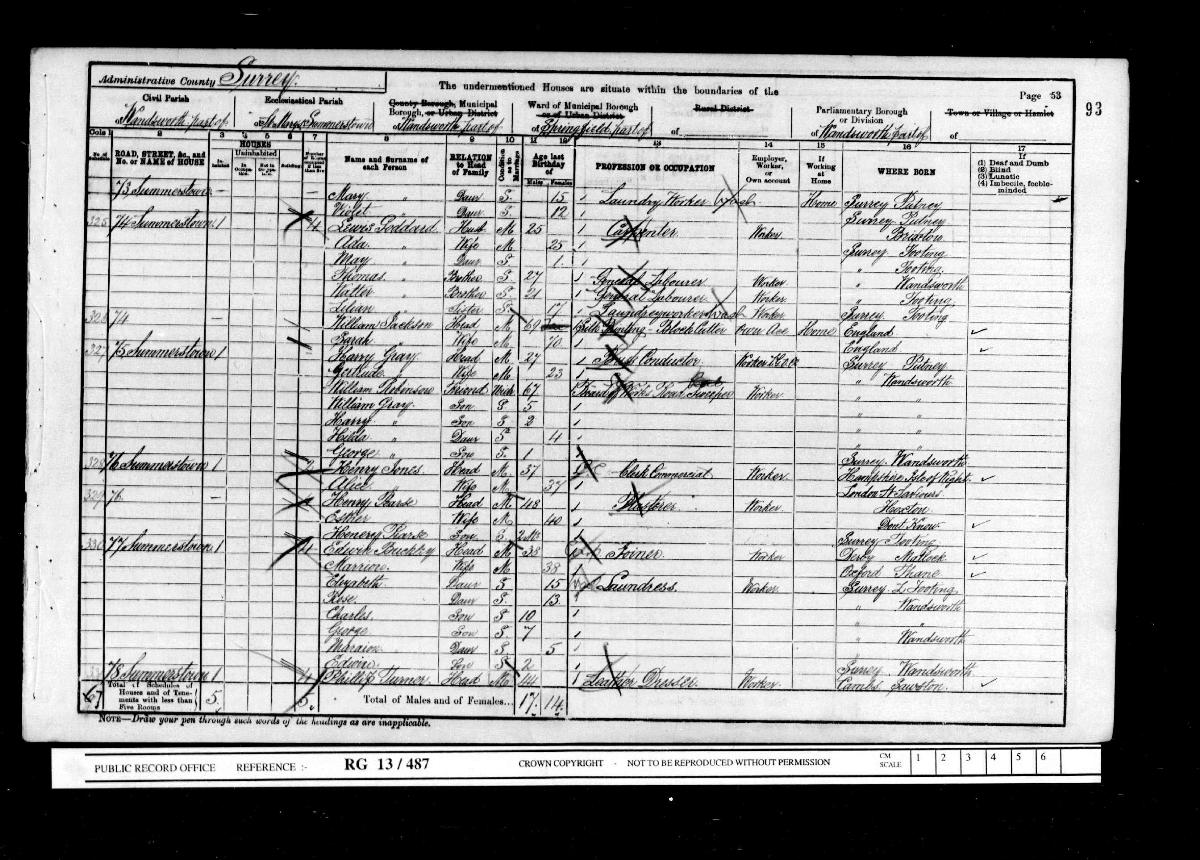 Administrative County Surrey.
The undermentioned Houses are situate within the boundaries of the
Page 53
93
Civil Parish
Ecclesiastical Parish
County Borough, Municipal Borough, or Urban District
Ward of Municipal Borough or of Urban District
Rural District
Parliamentary Borough or Division
Town or Village or Hamlet
of Wandsworth part of
of St Marys Summerstown
of Wandsworth part of
of Springfield part of
of
of Wandsworth part of
of
Cols 1 2 3 4 5 6 7 8 9 10 11 12 13 14 15 16 17
HOUSES
Uninhabited
ROAD, STREET, &c., and No. or NAME of HOUSE
Name and Surname of each Person
RELATION to Head of Family
Condition as to Marriage
Age last Birthday of
Males Females
PROFESSION OR OCCUPATION
Employer, Worker, or Own account
If Working at Home
WHERE BORN
If (1) Deaf and Dumb (2) Blind (3) Lunatic (4) Imbecile, feeble-minded
73 Summerstown — Mary " Daur S. 15 Laundry Worker Home Surrey Putney
Violet " Daur S. 12 Surrey Putney
325 74 Summerstown 1 4 Lewis Goddard M 25 Carpenter Worker Brixton
Ada " Wife M 25 Surrey Tooting
May " Daur S 1 " Tooting
Thomas " Brother S 27 General Labourer Worker " Wandsworth
Walter " Brother S. 21 General Labourer Worker " Tooting
Lilian " Sister S. 17 Laundryworker Worker Surrey Tooting
326 74 — William Jackson Head M 69 Silk Printing Block Cutter Own Acc Home England
Sarah " Wife M 70 England
327 75 Summerstown 1 Harry Gray Head M 27 Conductor Worker Surrey Putney
Gertrude " Wife M 23 " Wandsworth
William Robinson Friend Wid 67 Road Sweeper Worker " "
William Gray Son S 5 " "
Harry " Son S 2 " "
Hilda " Daur S 4 " "
George " Son S. 1 Surrey Wandsworth
328 76 Summerstown 1 Henry Jones Head M 37 Clerk Commercial Worker Hampshire Isle of Wight
Alice " Wife M. 37 London St Saviours
329 76 — Henry Pearse Head M 48 Plasterer Worker Hoxton
Esther " Wife M 40 Dont Know
Henery Pearse Son S 2 Ms Surrey Tooting
330 77 Summerstown 1 4 Edwin Buckley Head M 38 Joiner Worker Derby Matlock
Marrion Wife M 38 Oxford Thame
Elizabeth Daur S 15 Laundress. Worker Surrey L. Tooting
Rose Daur S 13 " Wandsworth
Charles Son S 10 " "
George Son S. 7 " Wandsworth
Daur S. 5
Edwin Son S 2 Surrey Wandsworth
78 Summerstown 1 4 Phillip Turner Head M 44 Leather Dresser Worker Cambs Sawston
Total of Schedules of Houses and of Tenements with less than Five Rooms 5 5
Total of Males and of Females... 17 14
NOTE—Draw your pen through such words of the headings as are inapplicable.
PUBLIC RECORD OFFICE REFERENCE :- RG 13 / 487 CROWN COPYRIGHT - NOT TO BE REPRODUCED WITHOUT PERMISSION CM SCALE 1 2 3 4 5 6